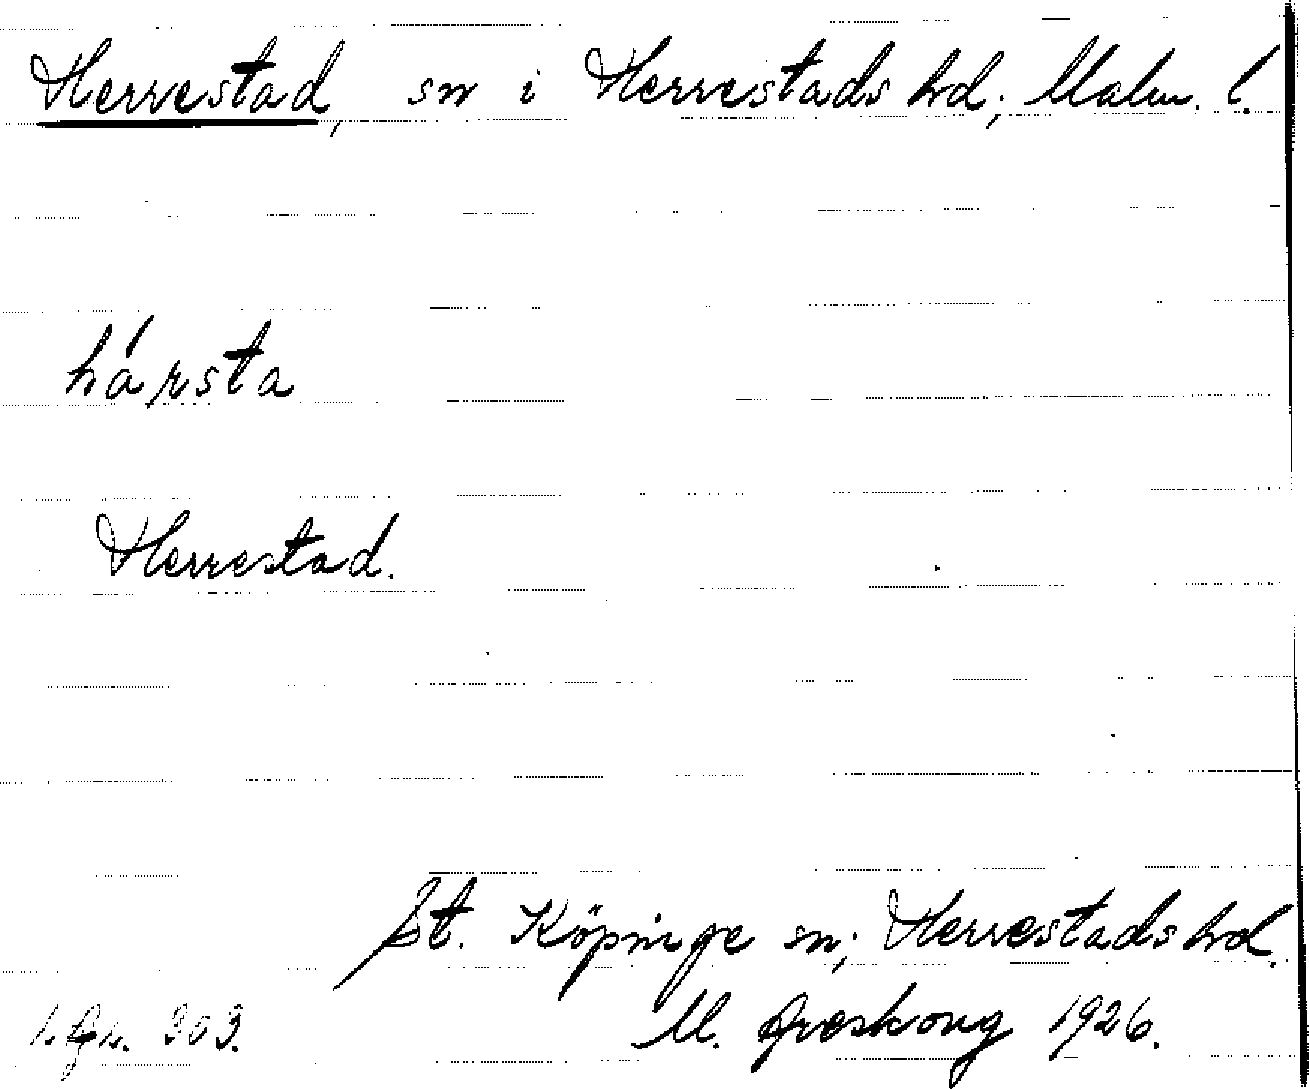 Herrestad, sn i Herrestads hd; Malm. l.
hársta
Herrestad.
St. Köpinge sn; Herrestads hd.
303. M. Areskoug 1926.